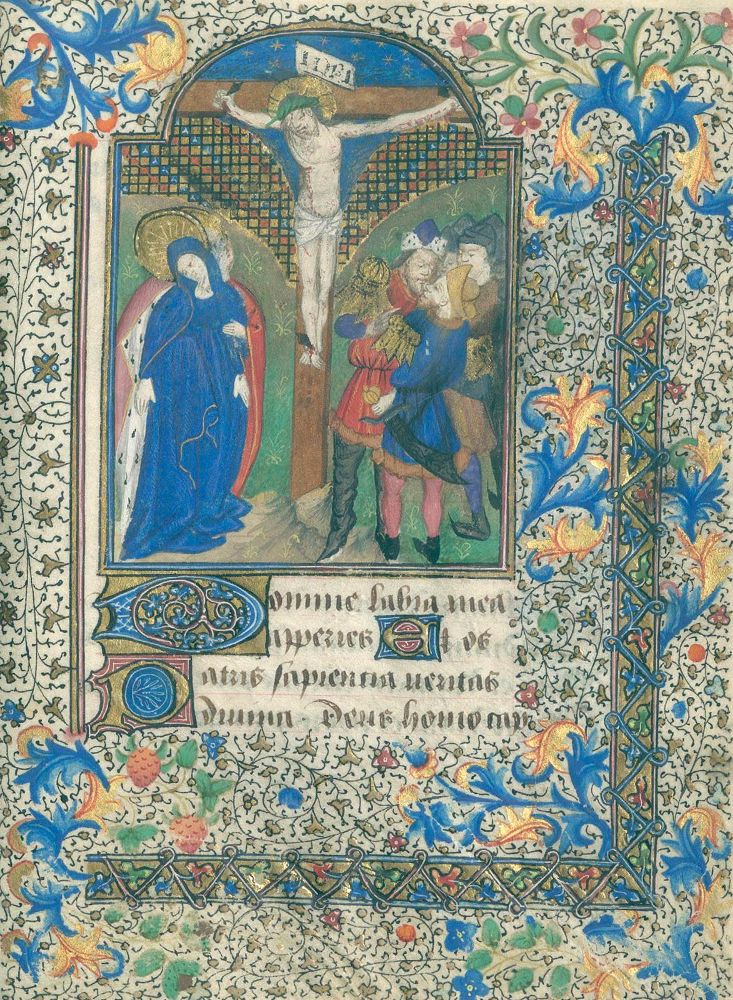 INRI
Domine labia mea
apperies Et os
Patris sapientia ueritas
diuina. Deus homo cap